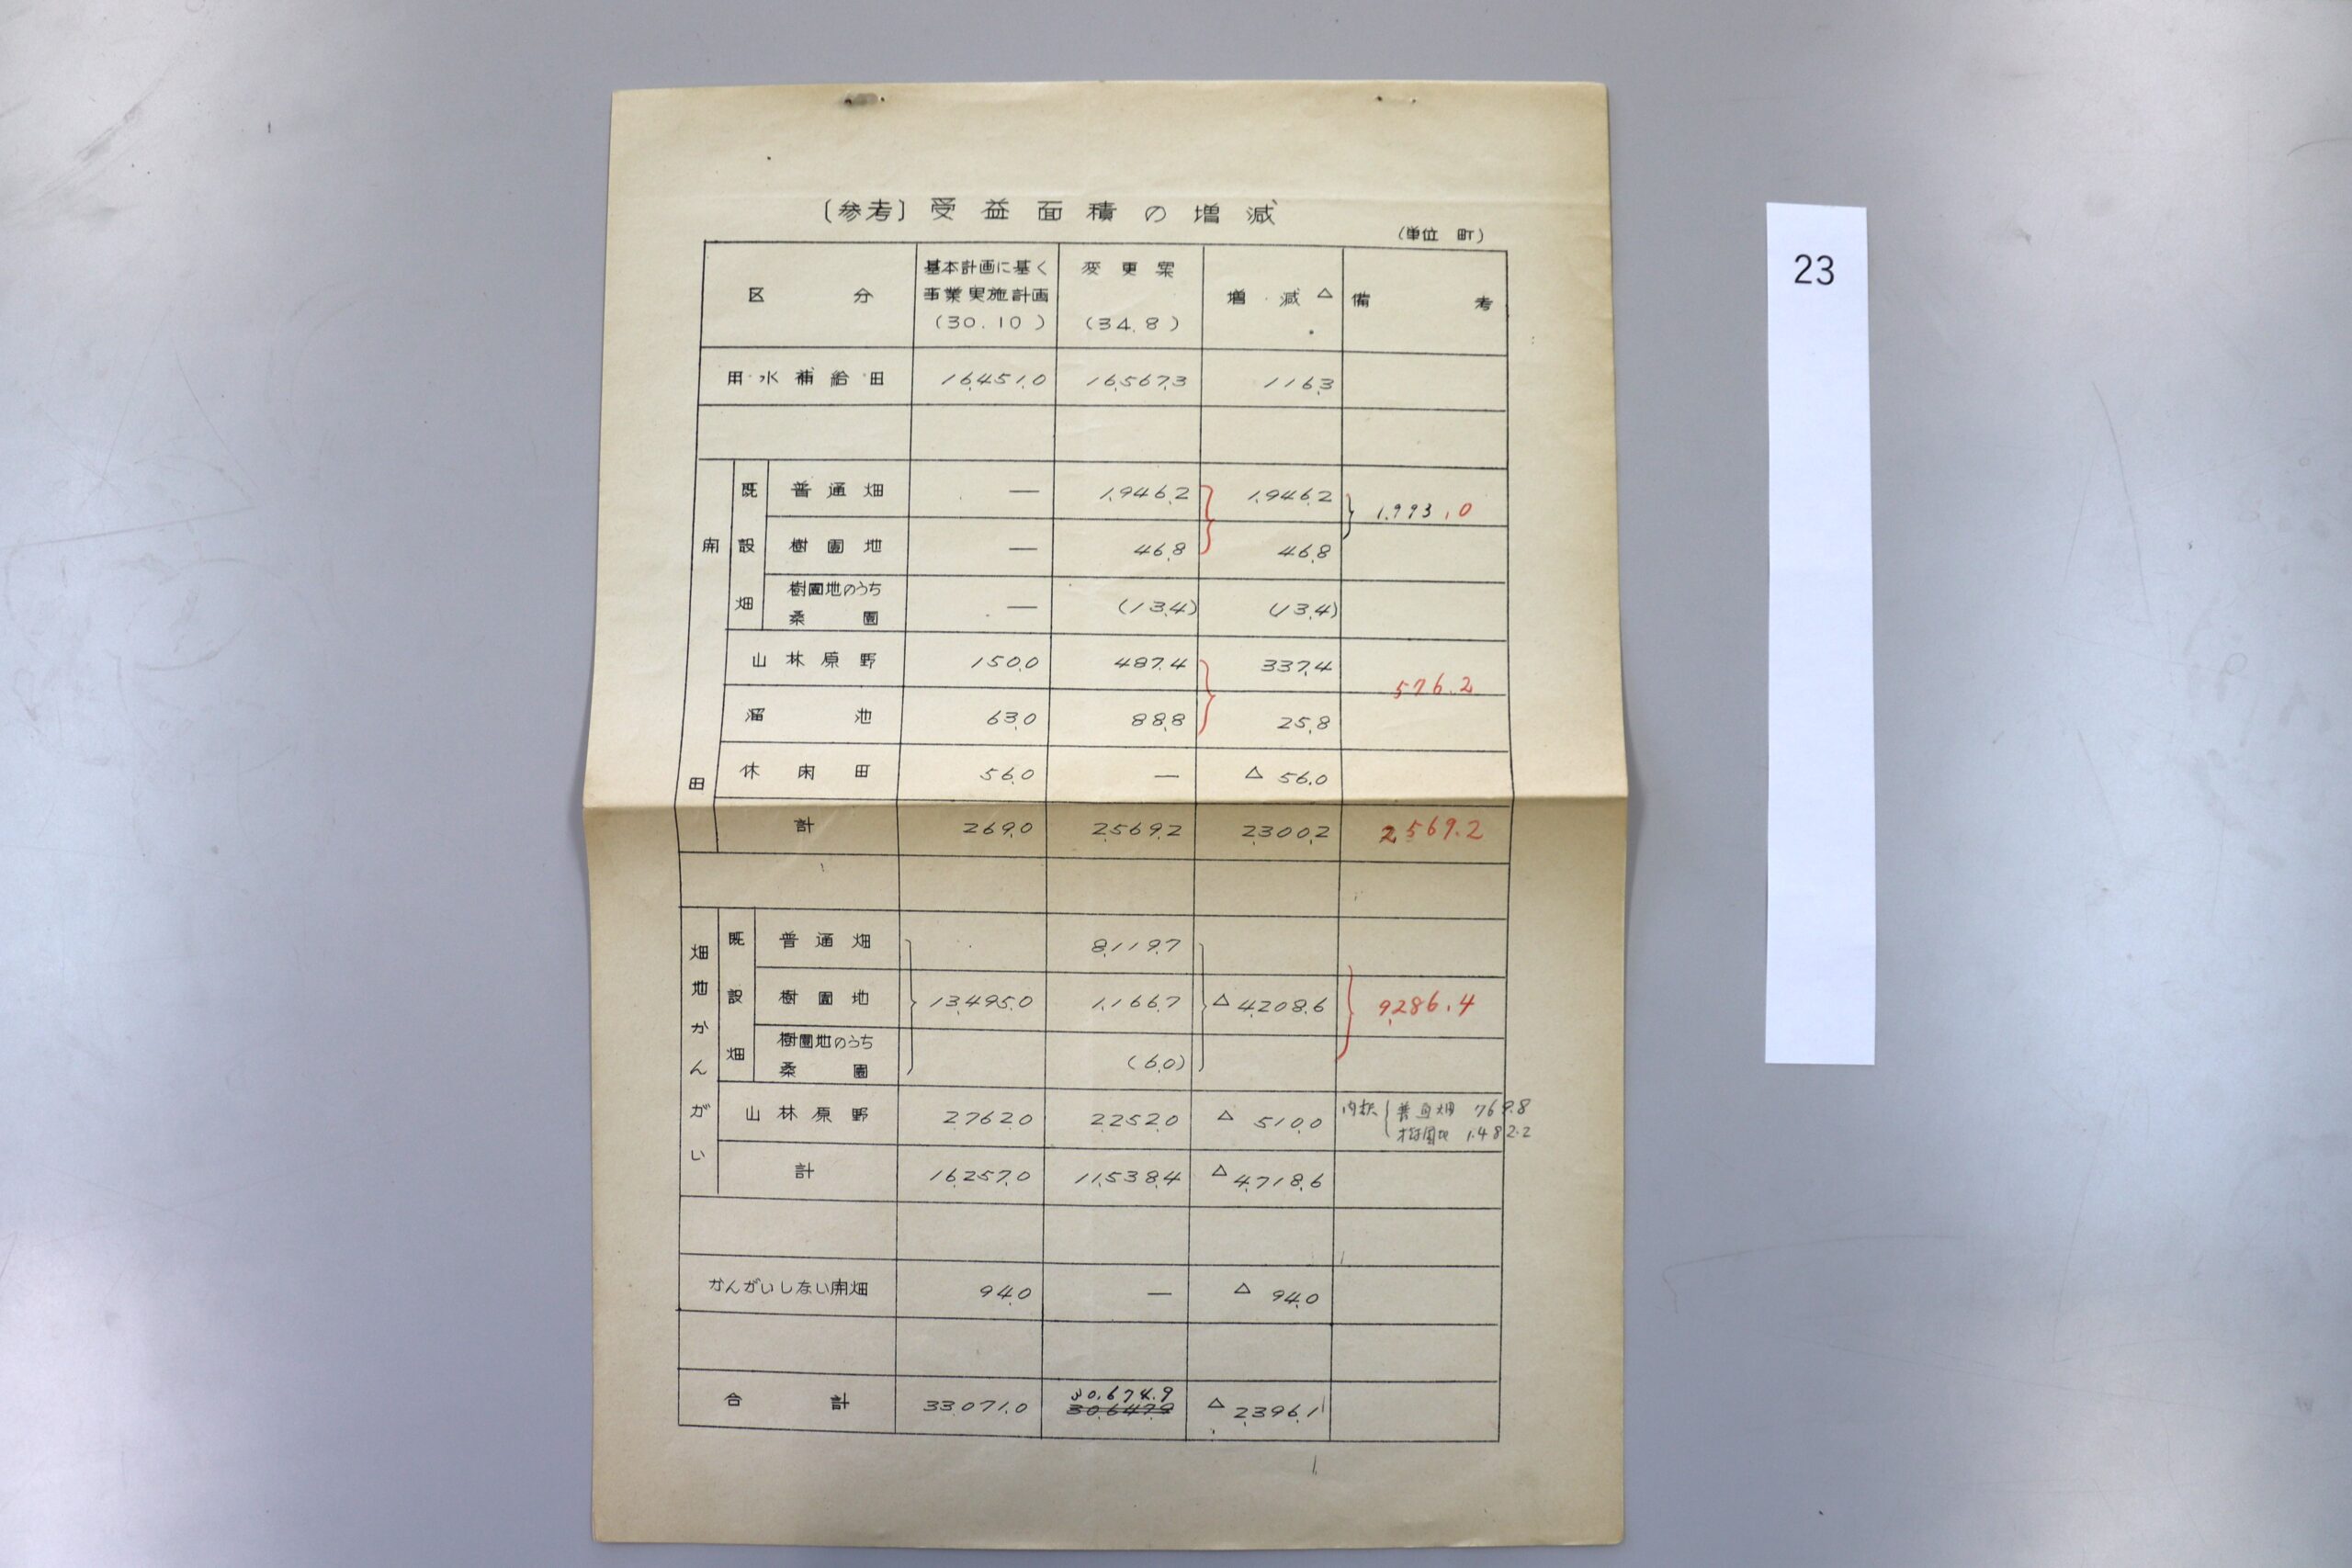 〔参考〕受益面積の増減
(単位 町)
区分 基本計画に基く事業実施計画(30.10) 変更案(34.8) 増減△ 備考
用水補給田 16,451.0 16,567.3 116.3
開田
既設畑
普通畑 — 1,946.2 1,946.2 1,993.0
樹園地 — 46.8 46.8
樹園地のうち桑園 — (13.4) (13.4)
山林原野 150.0 487.4 337.4 576.2
溜池 63.0 88.8 25.8
休閑田 56.0 — △ 56.0
計 269.0 2,569.2 2,300.2 2569.2
畑地かんがい
既設畑
普通畑 8,119.7
樹園地 13,495.0 1,166.7 △4,208.6 9,286.4
樹園地のうち桑園 (6.0)
山林原野 2,762.0 2,252.0 △ 510.0 内訳 普通畑 769.8
樹園地 1.482.2
計 16,257.0 11,538.4 △4,718.6
かんがいしない開畑 94.0 — △ 94.0
合計 33,071.0 30,674.9 30,647.9 △2,396.1
23